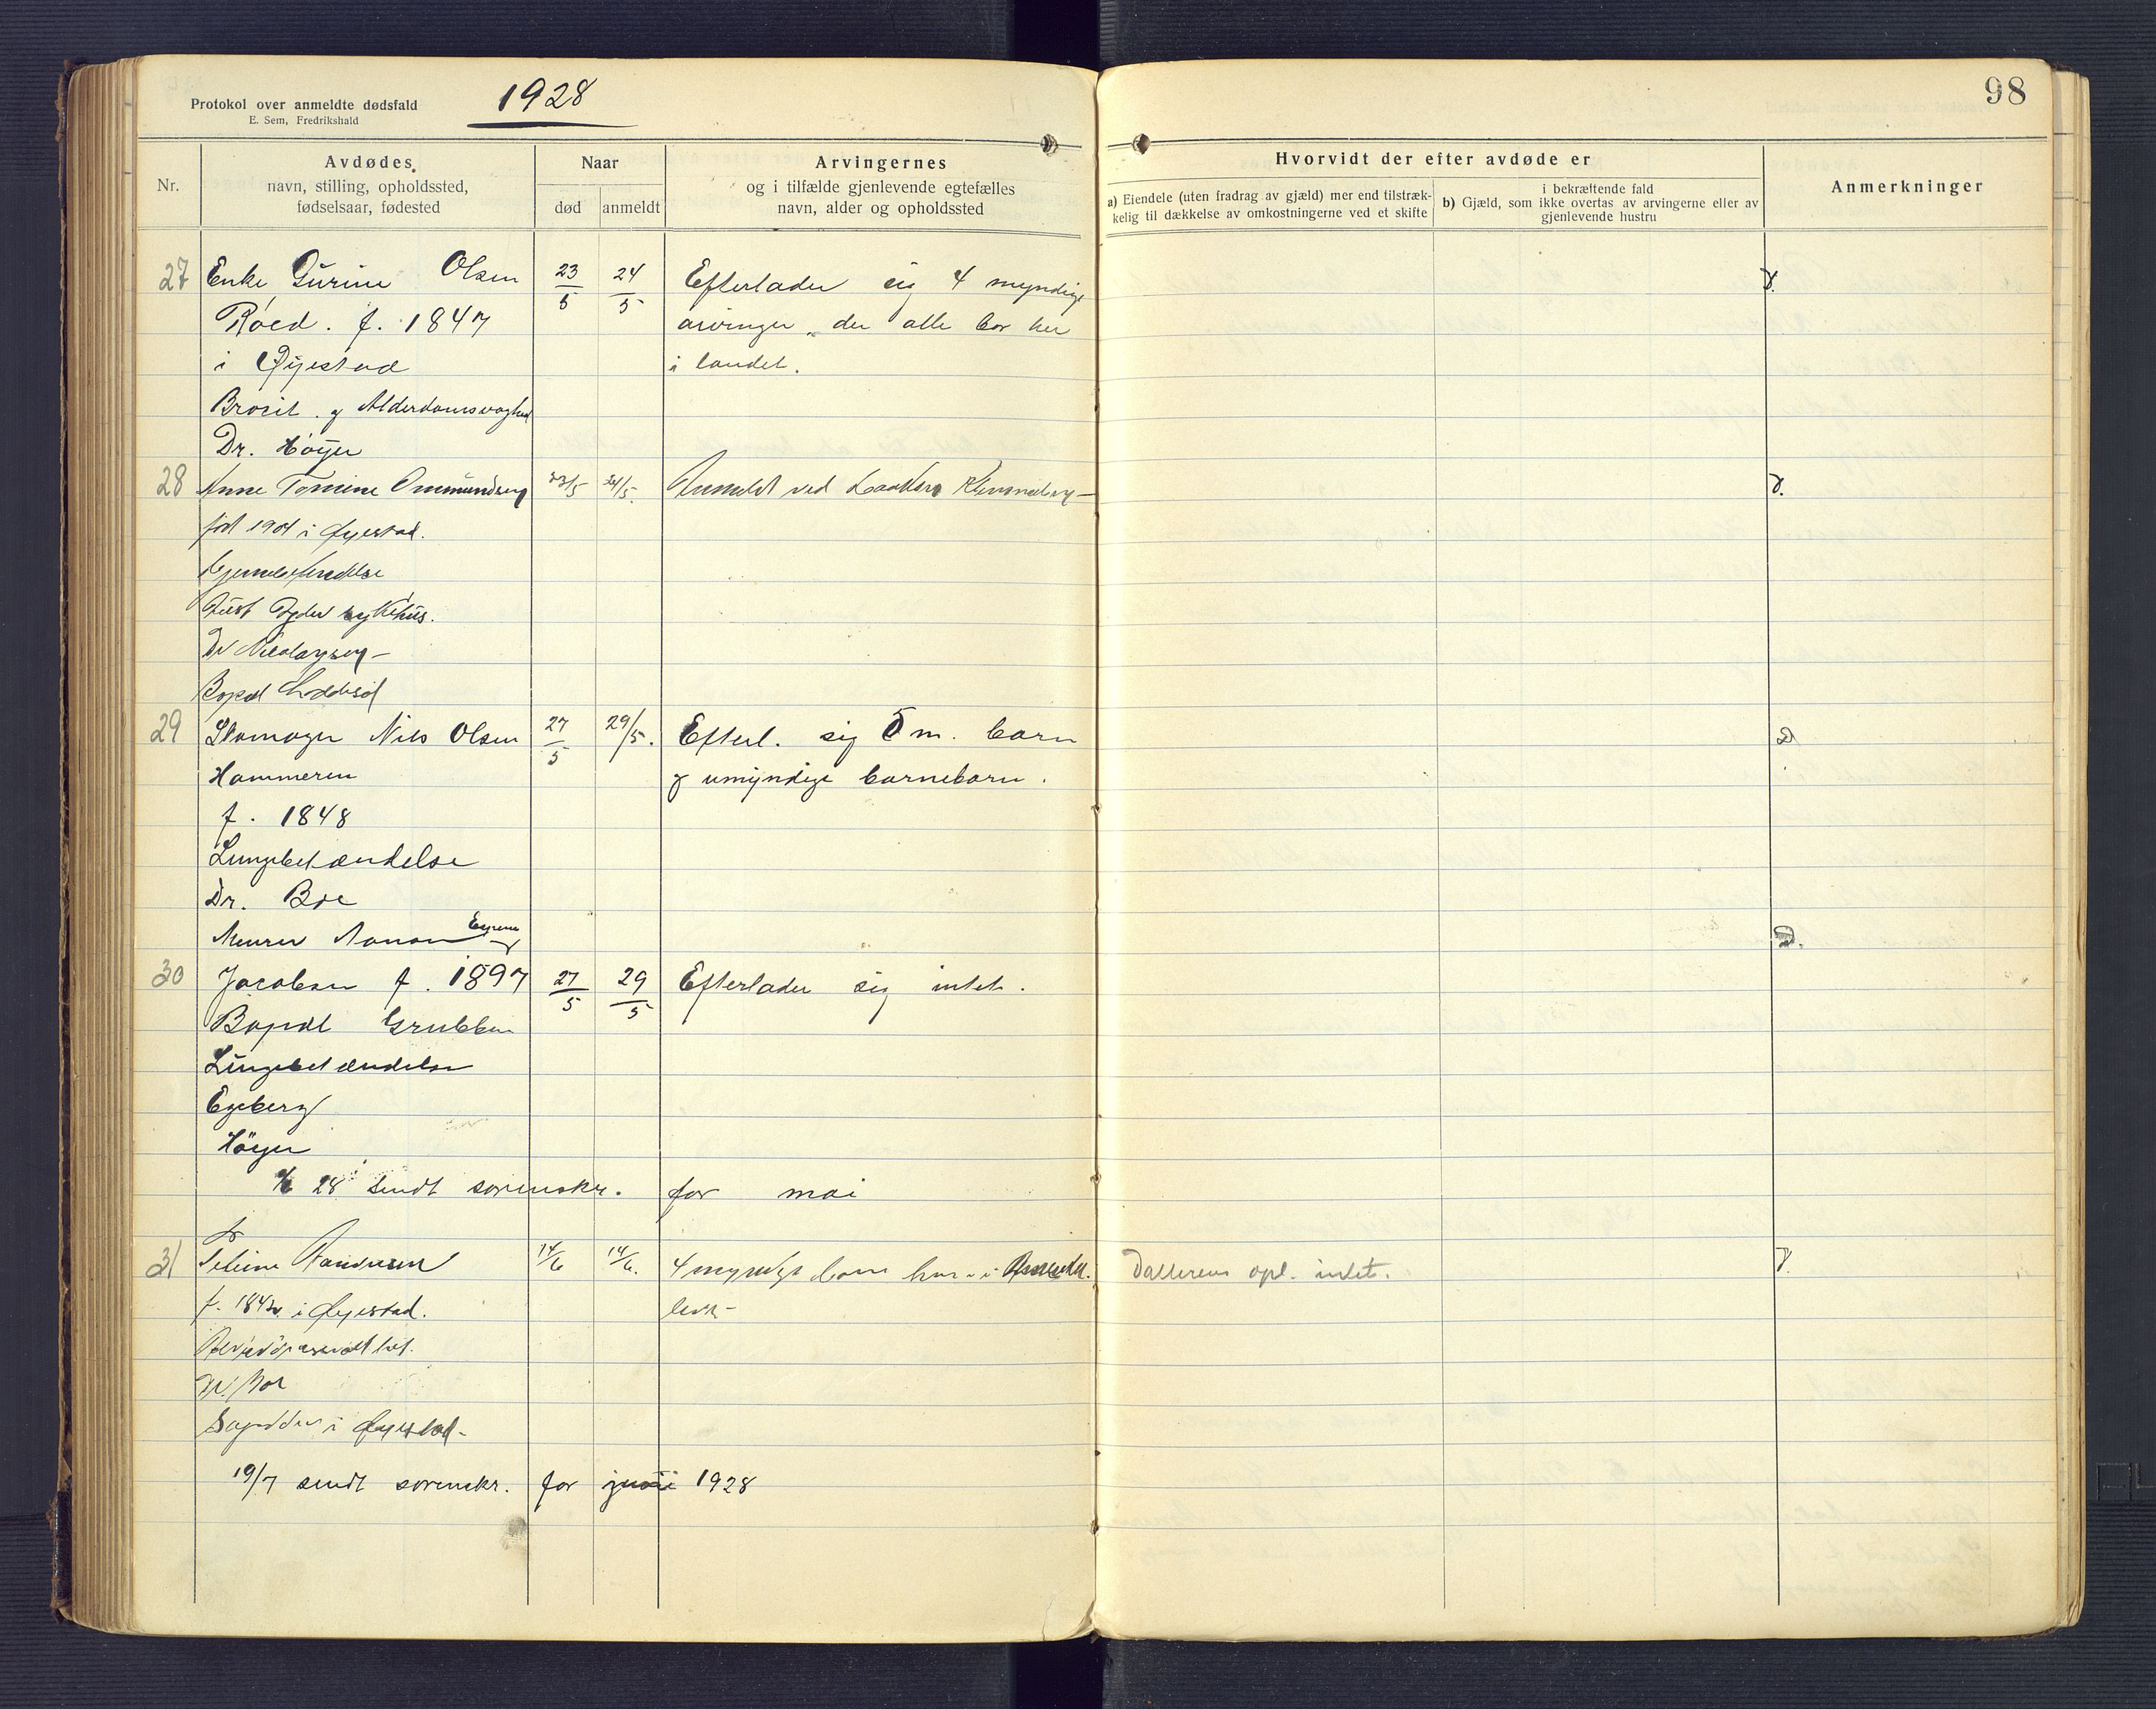 Protokol over anmeldte dødsfald
E. Sem, Fredrikshald
1928
98
Nr.
Avdødes
navn, stilling, opholdssted,
fødselsaar, fødested
Naar
død
anmeldt
Arvingernes
og i tilfælde gjenlevende egtefælles
navn, alder og opholdssted
Hvorvidt der efter avdøde er
a) Eiendele (uten fradrag av gjæld) mer end tilstræk-
kelig til dækkelse av omkostningerne ved et skifte
i bekræftende fald
b) Gjæld, som ikke overtas av arvingerne eller av
gjenlevende hustru
Anmerkninger
27 Enke Gurine Olsen 23/5 24/5 Efterlader sig 4 myndige
Røed. f. 1847 arvinger, der alle bor her
i Øyestad i landet.
og Alderdomssvaghed
Dr. Höyer
28 Anne Tomine Ommundsen 23/5 24/5 Anmeldt ved
født 1904 i Øyestad.
Aust Agder sykehus.
Dr Nicolaysen
Bopæl
29 Skomager Nils Olsen 27/5 29/5. Efterl. sig 5 m. barn
Hammeren & umyndige barnebarn.
f. 1848
Lungebetændelse
Dr. Boe
Murer
30 Jacobsen f. 1897 27/5 29/5 Efterlader sig intet.
Bopæl Grubben
Lungebetændelse
Egeberg
Höyer
28 sendt sorenskr. for mai
31 14/6 14/6. 4 myndige barn
f. 1842 i Øyestad.
Dr. Boe
i Øyestad-
Datteren opl. intet.
19/7 sendt sorenskr. for juni 1928